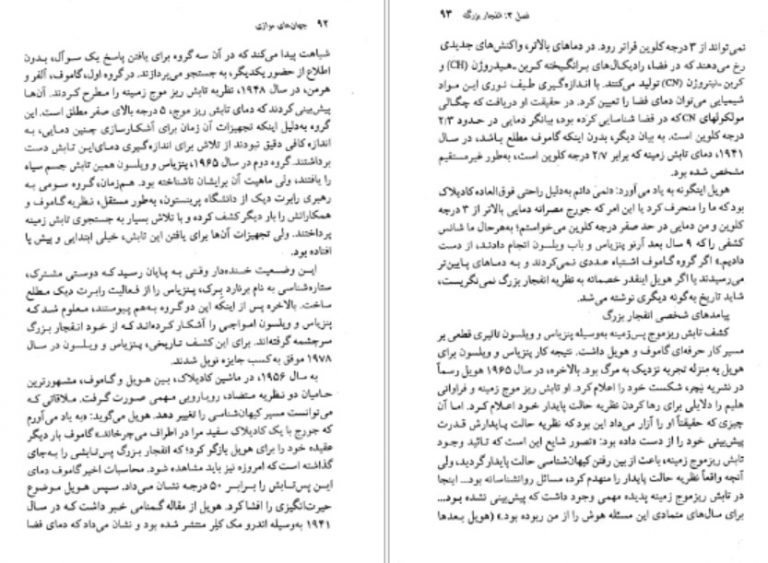 ۹۲ جهان‌های موازی
شباهت پیدا می‌کند که در آن سه گروه برای یافتن پاسخ یک سوآل، بدون
اطلاع از حضور یکدیگر، به جستجو می‌پردازند. در گروه اول، گاموف، آلفر و
هرمن، در سال ۱۹۴۸، نظریه تابش ریز موج زمینه را مطرح کردند. آن‌ها
پیش‌بینی کردند که دمای تابش ریز موج، ۵ درجه بالای صفر مطلق است. این
گروه به‌دلیل اینکه تجهیزات آن زمان برای آشکارسازی چنین دمایی، به
اندازه کافی دقیق نبودند از تلاش برای اندازه‌گیری دمای‌این تابش دست
برداشتند. گروه دوم در سال ۱۹۶۵، پنزیاس و ویلسون همین تابش جسم سیاه
را یافتند، ولی ماهیت آن برایشان ناشناخته بود. هم‌زمان، گروه سومی به
رهبری رابرت دیک از دانشگاه پرینستون، به‌طور مستقل، نظریه گاموف و
همکارانش را بار دیگر کشف کرده و با تلاش بسیار به جستجوی تابش زمینه
پرداختند. ولی تجهیزات آن‌ها برای یافتن این تابش، خیلی ابتدایی و پیش پا
افتاده بود.
این وضعیت خنده‌دار وقتی به پایان رسید که دوستی مشترک،
ستاره‌شناسی به نام برنارد برک، پنزیاس را از فعالیت رابرت دیک مطلع
ساخت. بالاخره پس از اینکه این دو گروه به‌هم پیوستند، معلوم شد که
پنزیاس و ویلسون امواجی را آشکار کرده‌اند که از خود انفجار بزرگ
سرچشمه گرفته‌اند. برای این کشف تاریخی، پنزیاس و ویلسون در سال
۱۹۷۸ موفق به کسب جایزه نوبل شدند.
به سال ۱۹۵۶، در ماشین کادیلاک، بین هویل و گاموف، مشهورترین
حامیان دو نظریه متضاد، رویارویی مهمی صورت گرفت. ملاقاتی که
می‌توانست مسیر کیهان‌شناسی را تغییر دهد. هویل می‌گوید: «به یاد می‌آورم
که جورج با یک کادیلاک سفید مرا در اطراف می‌چرخاند.» گاموف بار دیگر
عقیده خود را برای هویل بازگو کرد؛ که انفجار بزرگ پس‌تابشی را به‌جای
گذاشته است که امروزه نیز باید مشاهده شود. محاسبات اخیر گاموف دمای
این پس‌تابش را برابر ۵۰ درجه نشان می‌داد. سپس هویل موضوع
حیرت‌انگیزی را افشا کرد. هویل از مقاله گمنامی خبر داشت که در سال
۱۹۴۱ به‌وسیله اندرو مک کلر منتشر شده بود و نشان می‌داد که دمای فضا
فصل ۳: انفجار بزرگ ۹۳
نمی‌تواند از ۳ درجه کلوین فراتر رود. در دماهای بالاتر، واکنش‌های جدیدی
رخ می‌دهند که در فضا، رادیکال‌های برانگیخته کربن-هیدروژن (CH) و
کربن-نیتروژن (CN) تولید می‌کنند. با اندازه‌گیری طیف نوری این مواد
شیمیایی می‌توان دمای فضا را تعیین کرد. در حقیقت او دریافت که چگالی
مولکولهای CN که در فضا شناسایی کرده بود، بیانگر دمایی در حدود ۲/۳
درجه کلوین است. به بیان دیگر، بدون اینکه گاموف مطلع باشد، در سال
۱۹۴۱، دمای تابش زمینه که برابر ۲/۷ درجه کلوین است، به‌طور غیرمستقیم
مشخص شده بود.
هویل اینگونه به یاد می‌آورد: «نمی دانم به‌دلیل راحتی فوق‌العاده کادیلاک
بود که ما را منحرف کرد یا این امر که جورج مصرانه دمایی بالاتر از ۳ درجه
کلوین و من دمایی در حد صفر درجه کلوین می‌خواستم؛ به‌هرحال ما شانس
کشفی را که ۹ سال بعد آرنو پنزیاس و باب ویلسون انجام دادند، از دست
دادیم.» اگر گروه گاموف اشتباه عددی نمی‌کردند و به دماهای پایین‌تر
می‌رسیدند یا اگر هویل اینقدر خصمانه به نظریه انفجار بزرگ نمی‌نگریست،
شاید تاریخ به‌گونه دیگری نوشته می‌شد.
پیامدهای شخصی انفجار بزرگ
کشف تابش ریزموج پس‌زمینه به‌وسیله پنزیاس و ویلسون تاثیری قطعی بر
مسیر کار حرفه‌ای گاموف و هویل داشت. نتیجه کار پنزیاس و ویلسون برای
هویل به منزله تجربه نزدیک به مرگ بود. بالاخره، در سال ۱۹۶۵ هویل رسماً
در نشریه نیچر، شکست خود را اعلام کرد. او تابش ریز موج زمینه و فراوانی
هلیم را دلایلی برای رها کردن نظریه حالت پایدار خود اعلام کرد. اما آن
چیزی که حقیقتاً او را آزار می‌داد این بود که نظریه حالت پایدارش قدرت
پیش‌بینی خود را از دست داده بود: «تصور شایع این است که تائید وجود
تابش ریزموج زمینه، باعث از بین رفتن کیهان‌شناسی حالت پایدار گردید، ولی
آنچه واقعاً نظریه حالت پایدار را منهدم کرد، مسائل روانشناسانه بود... اینجا
در تابش ریزموج زمینه پدیده مهمی وجود داشت که پیش‌بینی نشده بود...
برای سال‌های متمادی این مسئله هوش را از من ربوده بود.» (هویل بعدها